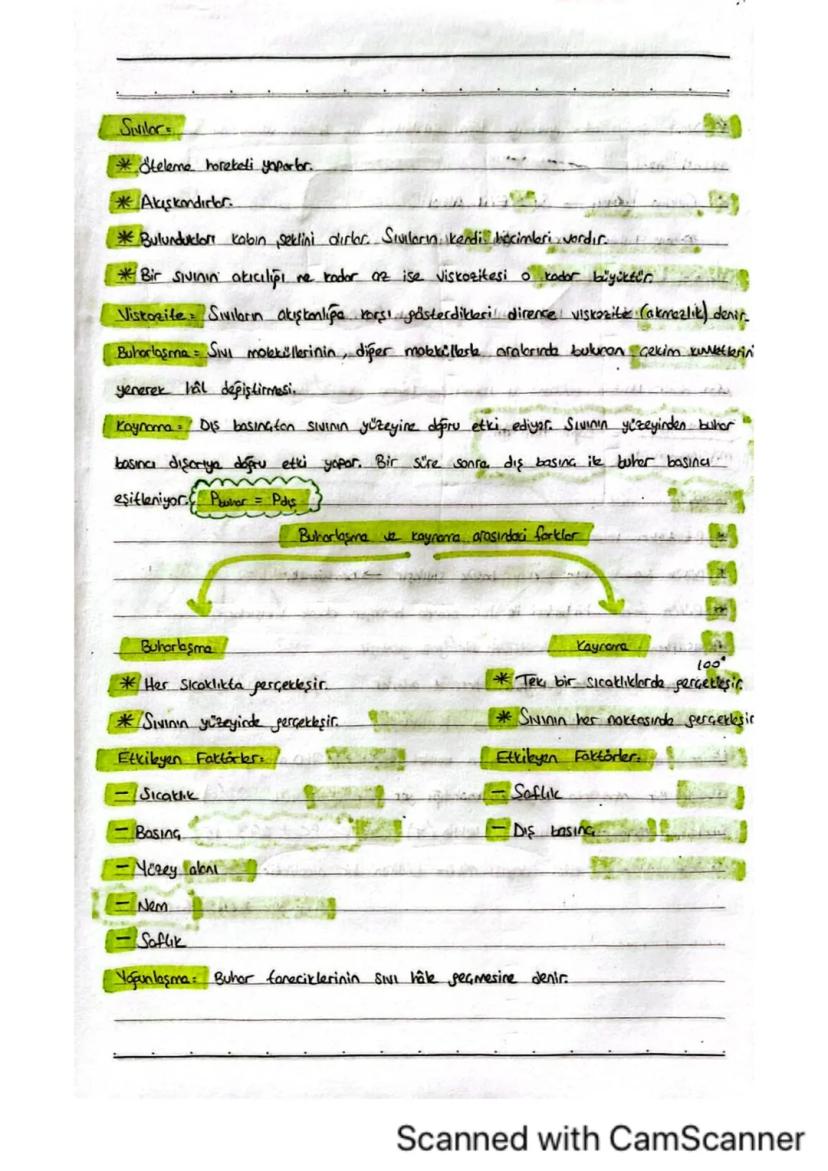 Sıvılar =
* Öteleme hareketi yaparlar.
* Akışkandırlar.
* Bulundukları kabın şeklini alırlar. Sıvıların kendi hacimleri vardır.
* Bir sıvının akıcılığı ne kadar az ise viskozitesi o kadar büyüktür.
Viskozite = Sıvıların akışkanlığa karşı gösterdikleri dirence viskozite (akmazlık) denir.
Buharlaşma = Sıvı moleküllerinin, diğer moleküllerle aralarında bulunan çekim kuvvetlerini
yenerek hâl değiştirmesi.
Kaynama = Dış basınçtan sıvının yüzeyine doğru etki ediyor. Sıvının yüzeyinden buhar
basıncı dışarıya doğru etki yapar. Bir süre sonra dış basınç ile buhar basıncı
eşitleniyor. Pbuhar = Pdış
Buharlaşma ve kaynama arasındaki farklar
Buharlaşma Kaynama
100°
* Her sıcaklıkta gerçekleşir. * Tek bir sıcaklıklarda gerçekleşir.
* Sıvının yüzeyinde gerçekleşir. * Sıvının her noktasında gerçekleşir
Etkileyen Faktörler: Etkileyen Faktörler:
– Sıcaklık – Saflık
– Basınç – Dış basınç
– Yüzey alanı
– Nem
– Saflık
Yoğunlaşma: Buhar taneciklerinin sıvı hâle geçmesine denir.
Scanned with CamScanner